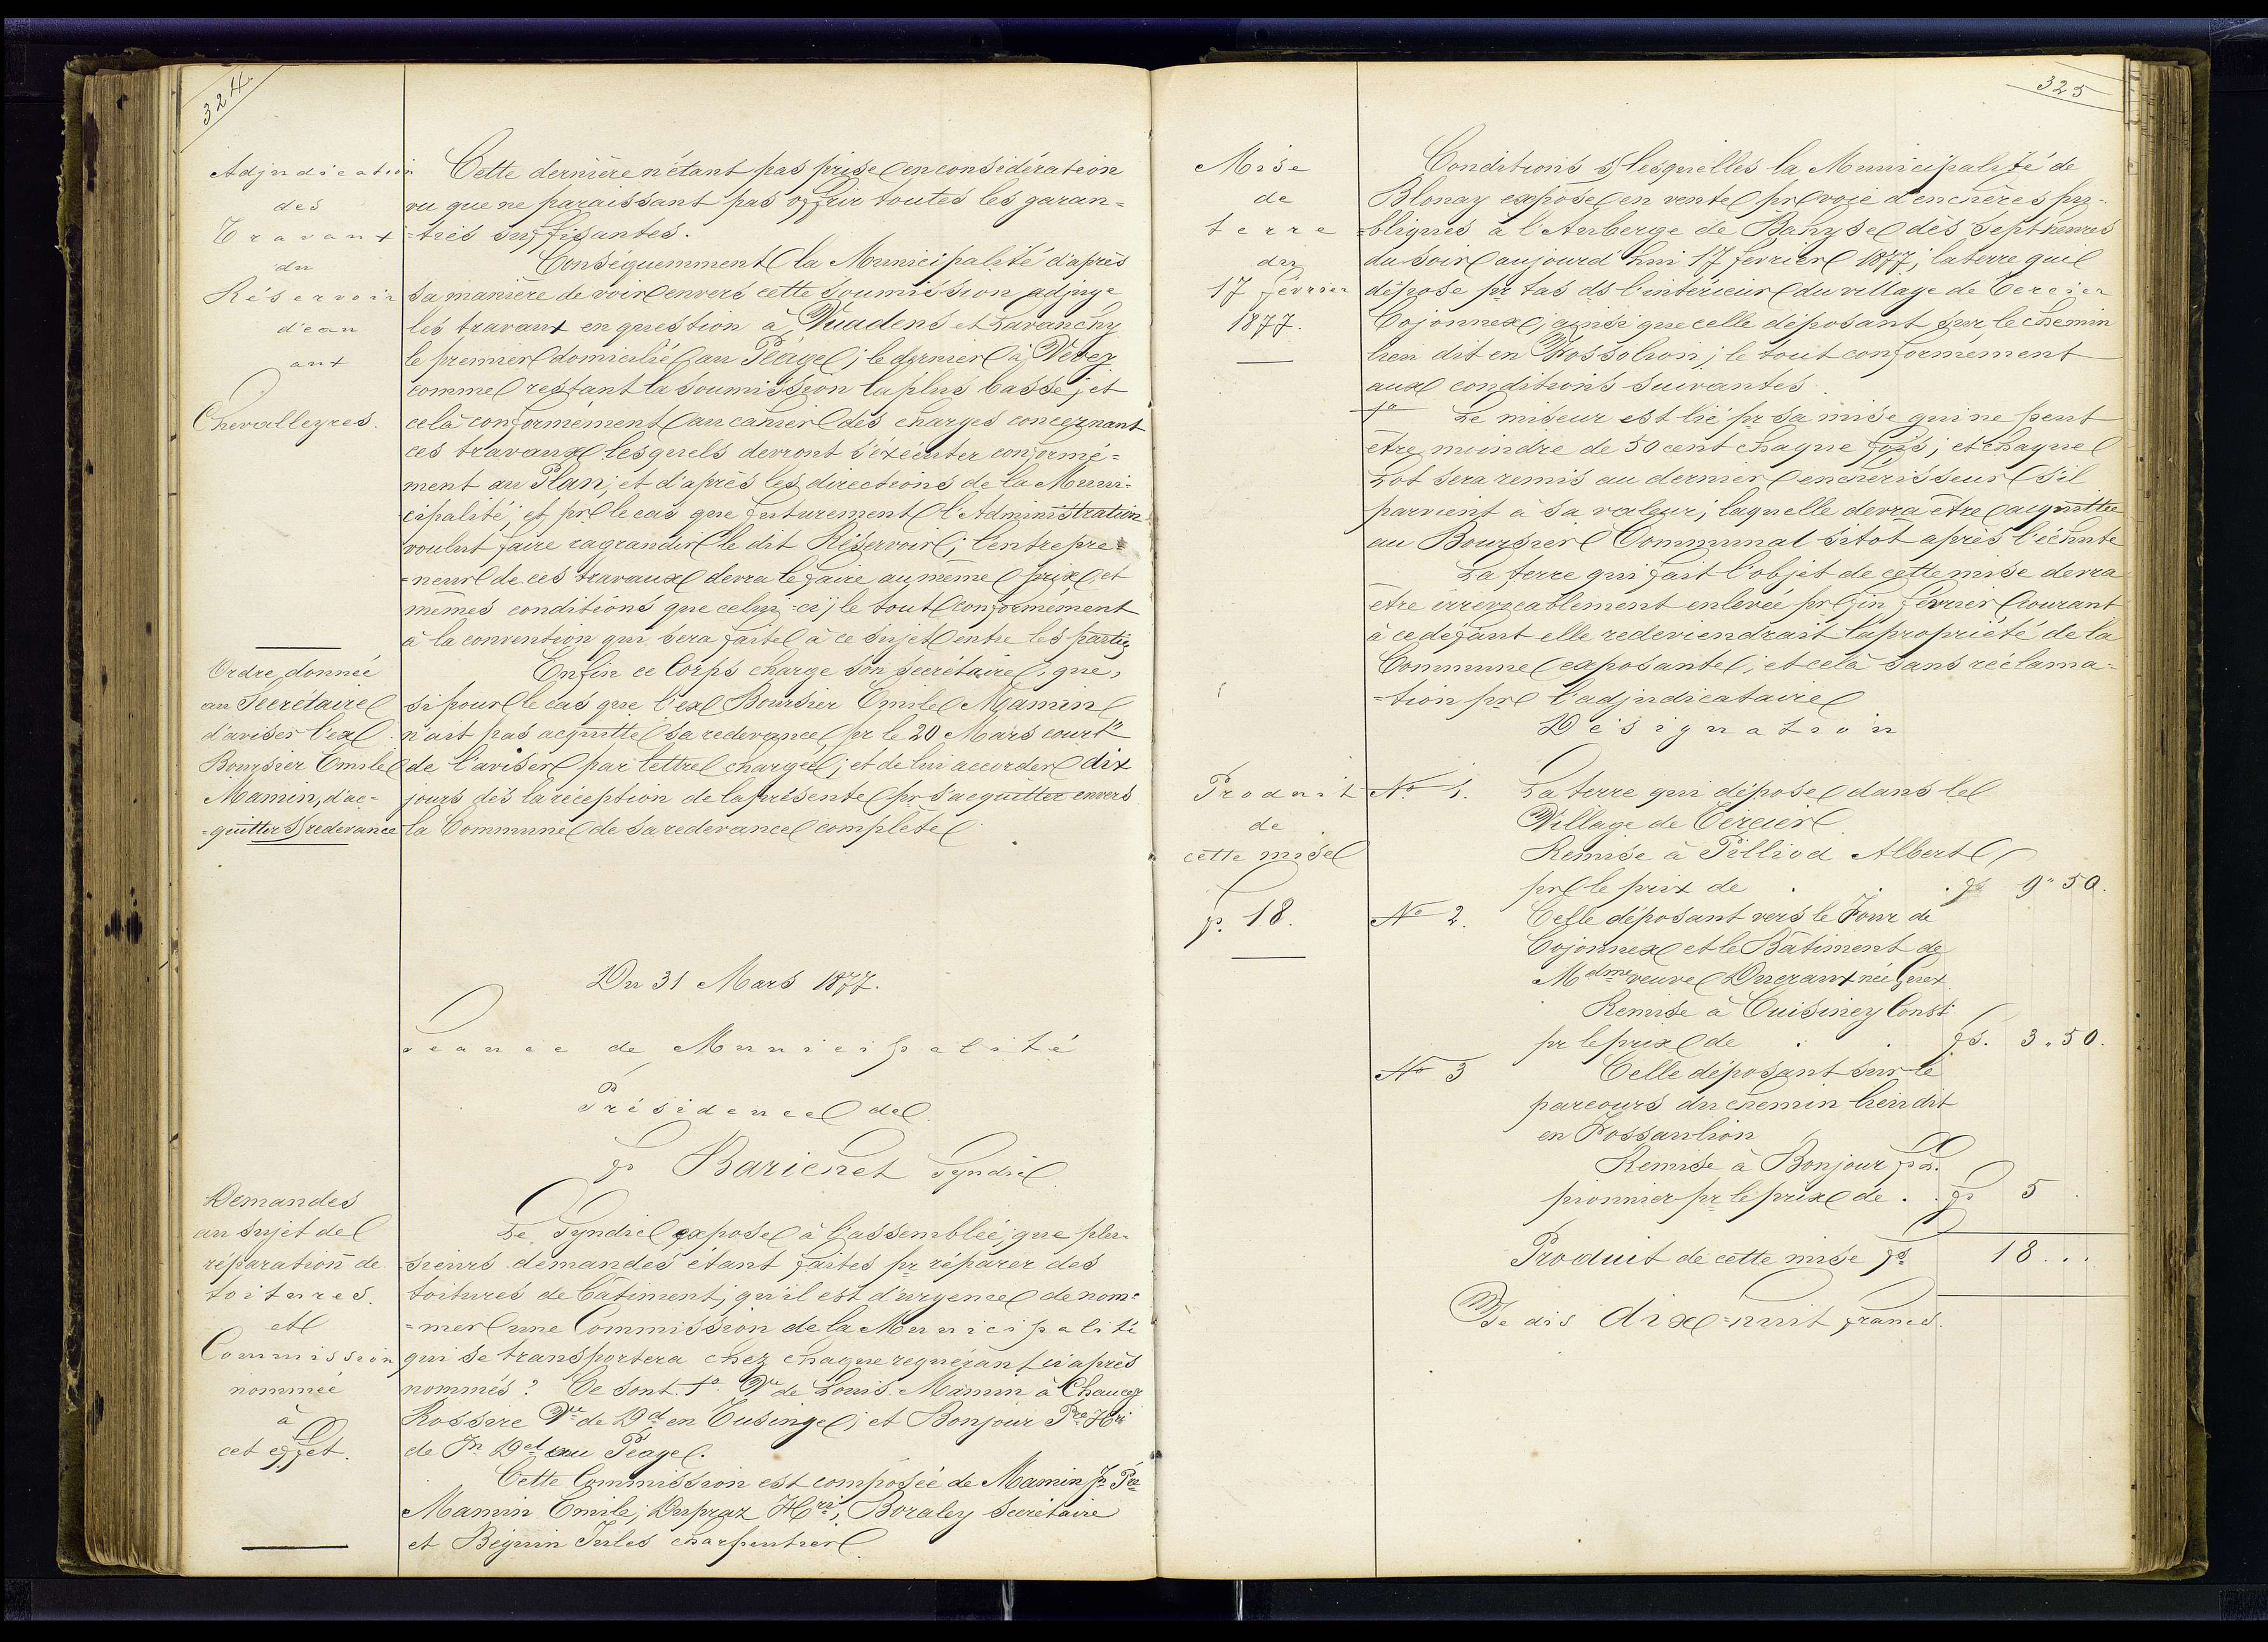 324.
Adjudication
des
Travaux
du
Réservoir
d'eau
aux
Chevalleyres.
Cette dernière n'étant pas prise en considération
vu que ne paraissant pas offrir toutes les garan=
=ties suffisantes.
Conséquemment la Municipalité d'après
sa manière de voir envers cette soumission adjuge
les travaux en question à Vuadens et Lavanchy
le premier domicilié au Péage; le dernier à Vevey
comme restant la soumission la plus basse; et
celà conformément au cahier des charges concernant
ces travaux lesquels devront s'éxécuter conformé=
ment au Plan; et d'après les directions de la Muni-
cipalité; et pr le cas que futurement l'Administration
voulut faire ragrandir le dit Réservoir; l'entrepre=
=neur de ces travaux devra le faire au même prix et
mêmes conditions que celui-ci; le tout conformément
à la convention qui sera faite à ce sujet entre les parties
Ordre donnée
au Secrétaire
d'aviser l'ex
Boursier Emile
Mamin, d'ac=
=quitter s/ redevance
Enfin ce Corps charge son secrétaire, que,
si pour le cas que l'ex Boursier Emile Mamin
n'ait pas acquitté sa redevance pr le 20 Mars court
de l'aviser par lettre chargée; et de lui accorder dix
jours dès la réception de la présente pr s'acquitter envers
la Commune de sa redevance complète
Du 31 Mars 1877.
Séance de Municipalité
Présidence de
fs Barichet Syndic
Demandes
au sujet de
réparation de
toitures
et
Commission
nommée
à
cet effet.
Le Syndic expose à l'assemblée, que plu-
-sieurs demandes étant faites pr réparer des
toitures de bâtiment, qu'il est d'urgence de nom=
=mer une Commission de la Municipalité
qui se transportera chez chaque requérant ci après
nommés? Ce sont 1o. Ve de Louis Mamin à Chaucey
Rossire Ve de Dd en Tusinge; et Bonjour Pre Hri
de Jn Del au Péage.
Cette Commission est composée de Mamin Jn Pre
Mamin Emile; Dupraz Hri; Boraley Secrétaire
et Béguin Jules charpentier
325
Mise
de
terre
du
17 février
1877.
Conditions s/ lesquelles la Municipalité de
Blonay expose en vente pr voie d'enchères pu-
=bliques à l'Auberge de Bahyse dès Sept heures
du soir aujourd'hui 17 février 1877; la terre qui
dépose pr tas ds l'intérieur du village de Cercier
Cojonnex; ainsi que celle déposant sur le chemin
lieu dit en Fossolion; le tout conformément
aux conditions suivantes
1o Le miseur est lié pr sa mise qui ne peut
être moindre de 50 cent chaque fois; et chaque
Lot sera remis au dernier enchérisseur s'il
parvient à sa valeur; laquelle devra être acquittée
au Boursier Communal sitôt après l'échute
La terre qui fait l'objet de cette mise devra
être irrévocablement enlevée pr fin février courant
à ce défaut elle redeviendrait la propriété de la
Commune exposante; et celà sans réclama=
=tion pr l'adjudicataire
Désignation
Produit
de
cette mise
fr. 18.
No 1. La terre qui dépose dans le
Village de Cercier
Remise à Pilliod Albert
pr le prix de . . . fs 9" 50.
No 2. Celle déposant vers le Four de
Cojonnex et le Bâtiment de
Mdme veuve Ducraux née Guex
Remise à Cuisiney Const
pr le prix de . . fs. 3 " 50.
No 3 Celle déposant sur le
parcours du chemin lieu dit
en Fossaulion
Remise à Bonjour fs L.
pionnier pr le prix de . . fs 5 .
Produit de cette mise fs 18 . . .
Je dis dix=huit francs.